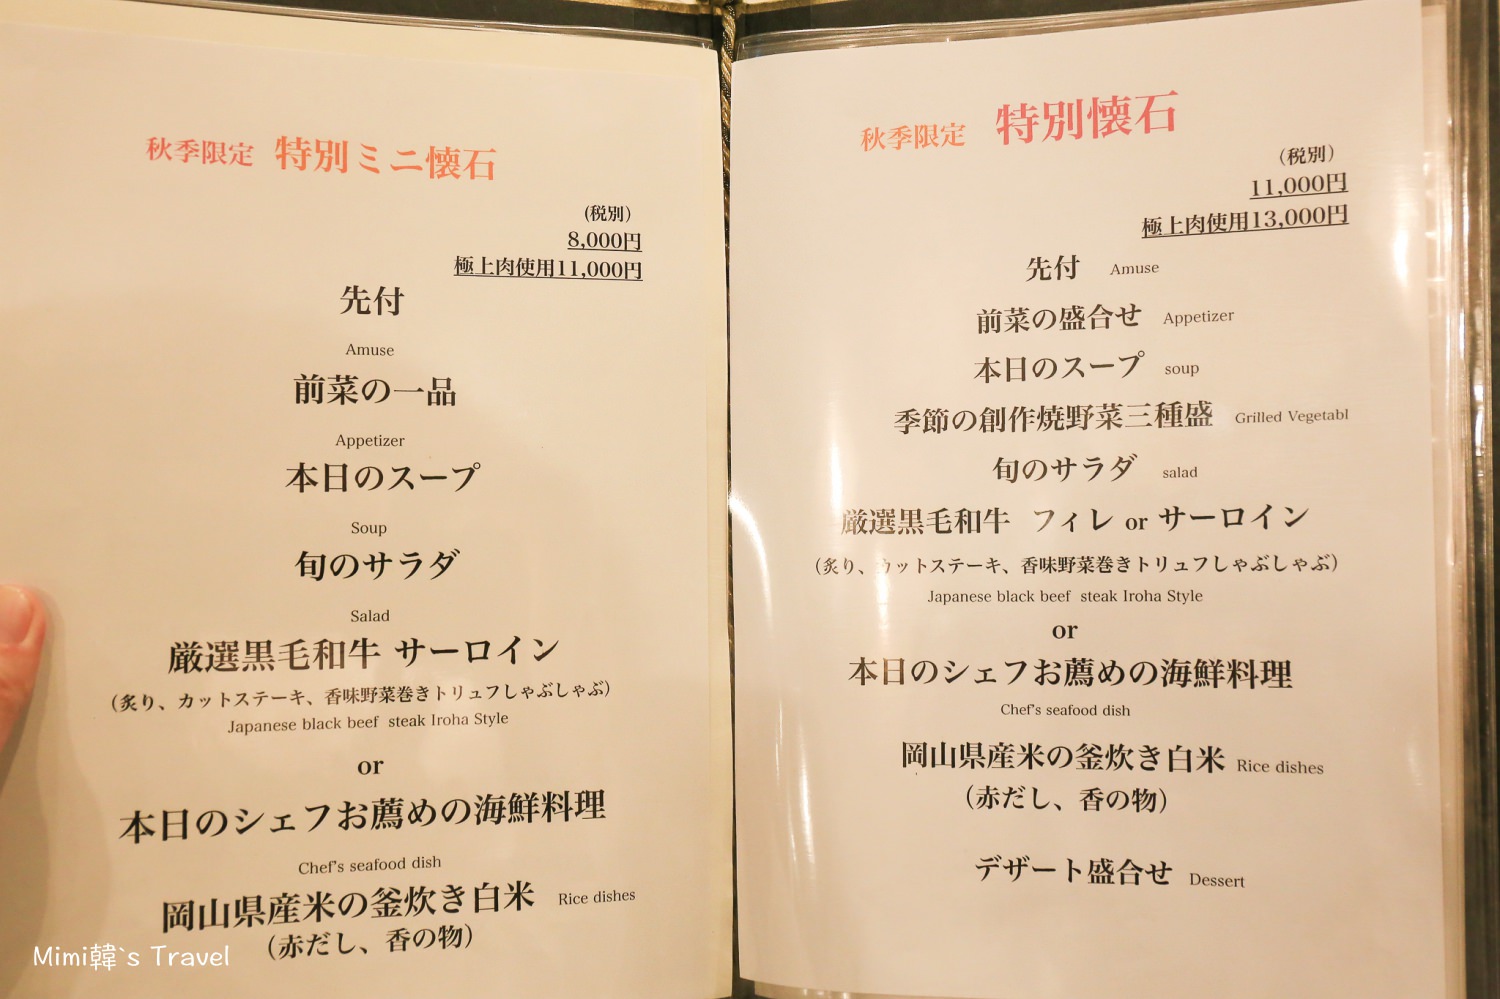 秋季限定 特別ミニ懐石
(税別)
8,000円
極上肉使用11,000円
先付
Amuse
前菜の一品
Appetizer
本日のスープ
Soup
旬のサラダ
Salad
厳選黒毛和牛 サーロイン
(炙り、カットステーキ、香味野菜巻きトリュフしゃぶしゃぶ)
Japanese black beef steak Iroha Style
or
本日のシェフお薦めの海鮮料理
Chef's seafood dish
岡山県産米の釜炊き白米 Rice dishes
(赤だし、香の物)
秋季限定 特別懐石
(税別)
11,000円
極上肉使用13,000円
先付 Amuse
前菜の盛合せ Appetizer
本日のスープ soup
季節の創作焼野菜三種盛 Grilled Vegetabl
旬のサラダ salad
厳選黒毛和牛 フィレ or サーロイン
(炙り、カットステーキ、香味野菜巻きトリュフしゃぶしゃぶ)
Japanese black beef steak Iroha Style
or
本日のシェフお薦めの海鮮料理
Chef's seafood dish
岡山県産米の釜炊き白米 Rice dishes
(赤だし、香の物)
デザート盛合せ Dessert
Mimi韓`s Travel